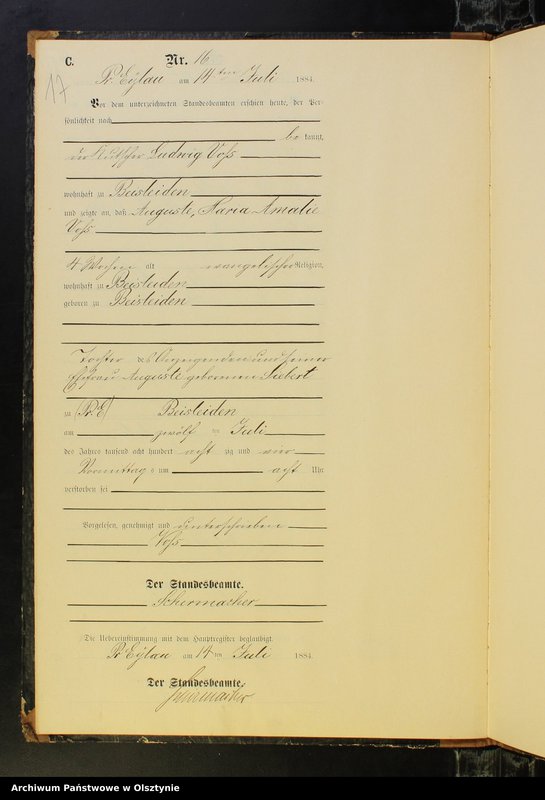 C. Nr. 16
17
Pr. Eylau am 14 ten Juli 1884.
Vor dem unterzeichneten Standesbeamten erschien heute, der Per-
sönlichkeit nach
be kannt,
der Kutscher Ludwig Voß
wohnhaft zu Beisleiden
und zeigte an, daß Auguste, Maria Amalie
Voß
4 Wochen alt evangelischer Religion,
wohnhaft zu Beisleiden
geboren zu Beisleiden
Tochter des Anzeigenden und seiner
Ehefrau Auguste geborenen Siebert
zu (Pr. E) Beisleiden
am zwölf ten Juli
des Jahres tausend acht hundert acht zig und vier
Vormittag s um acht Uhr
verstorben sei
Vorgelesen, genehmigt und unterschrieben
Voß
Der Standesbeamte.
Schermacher
Die Uebereinstimmung mit dem Hauptregister beglaubigt.
Pr. Eylau am 14 ten Juli 1884.
Der Standesbeamte.
Schermacher
Archiwum Państwowe w Olsztynie